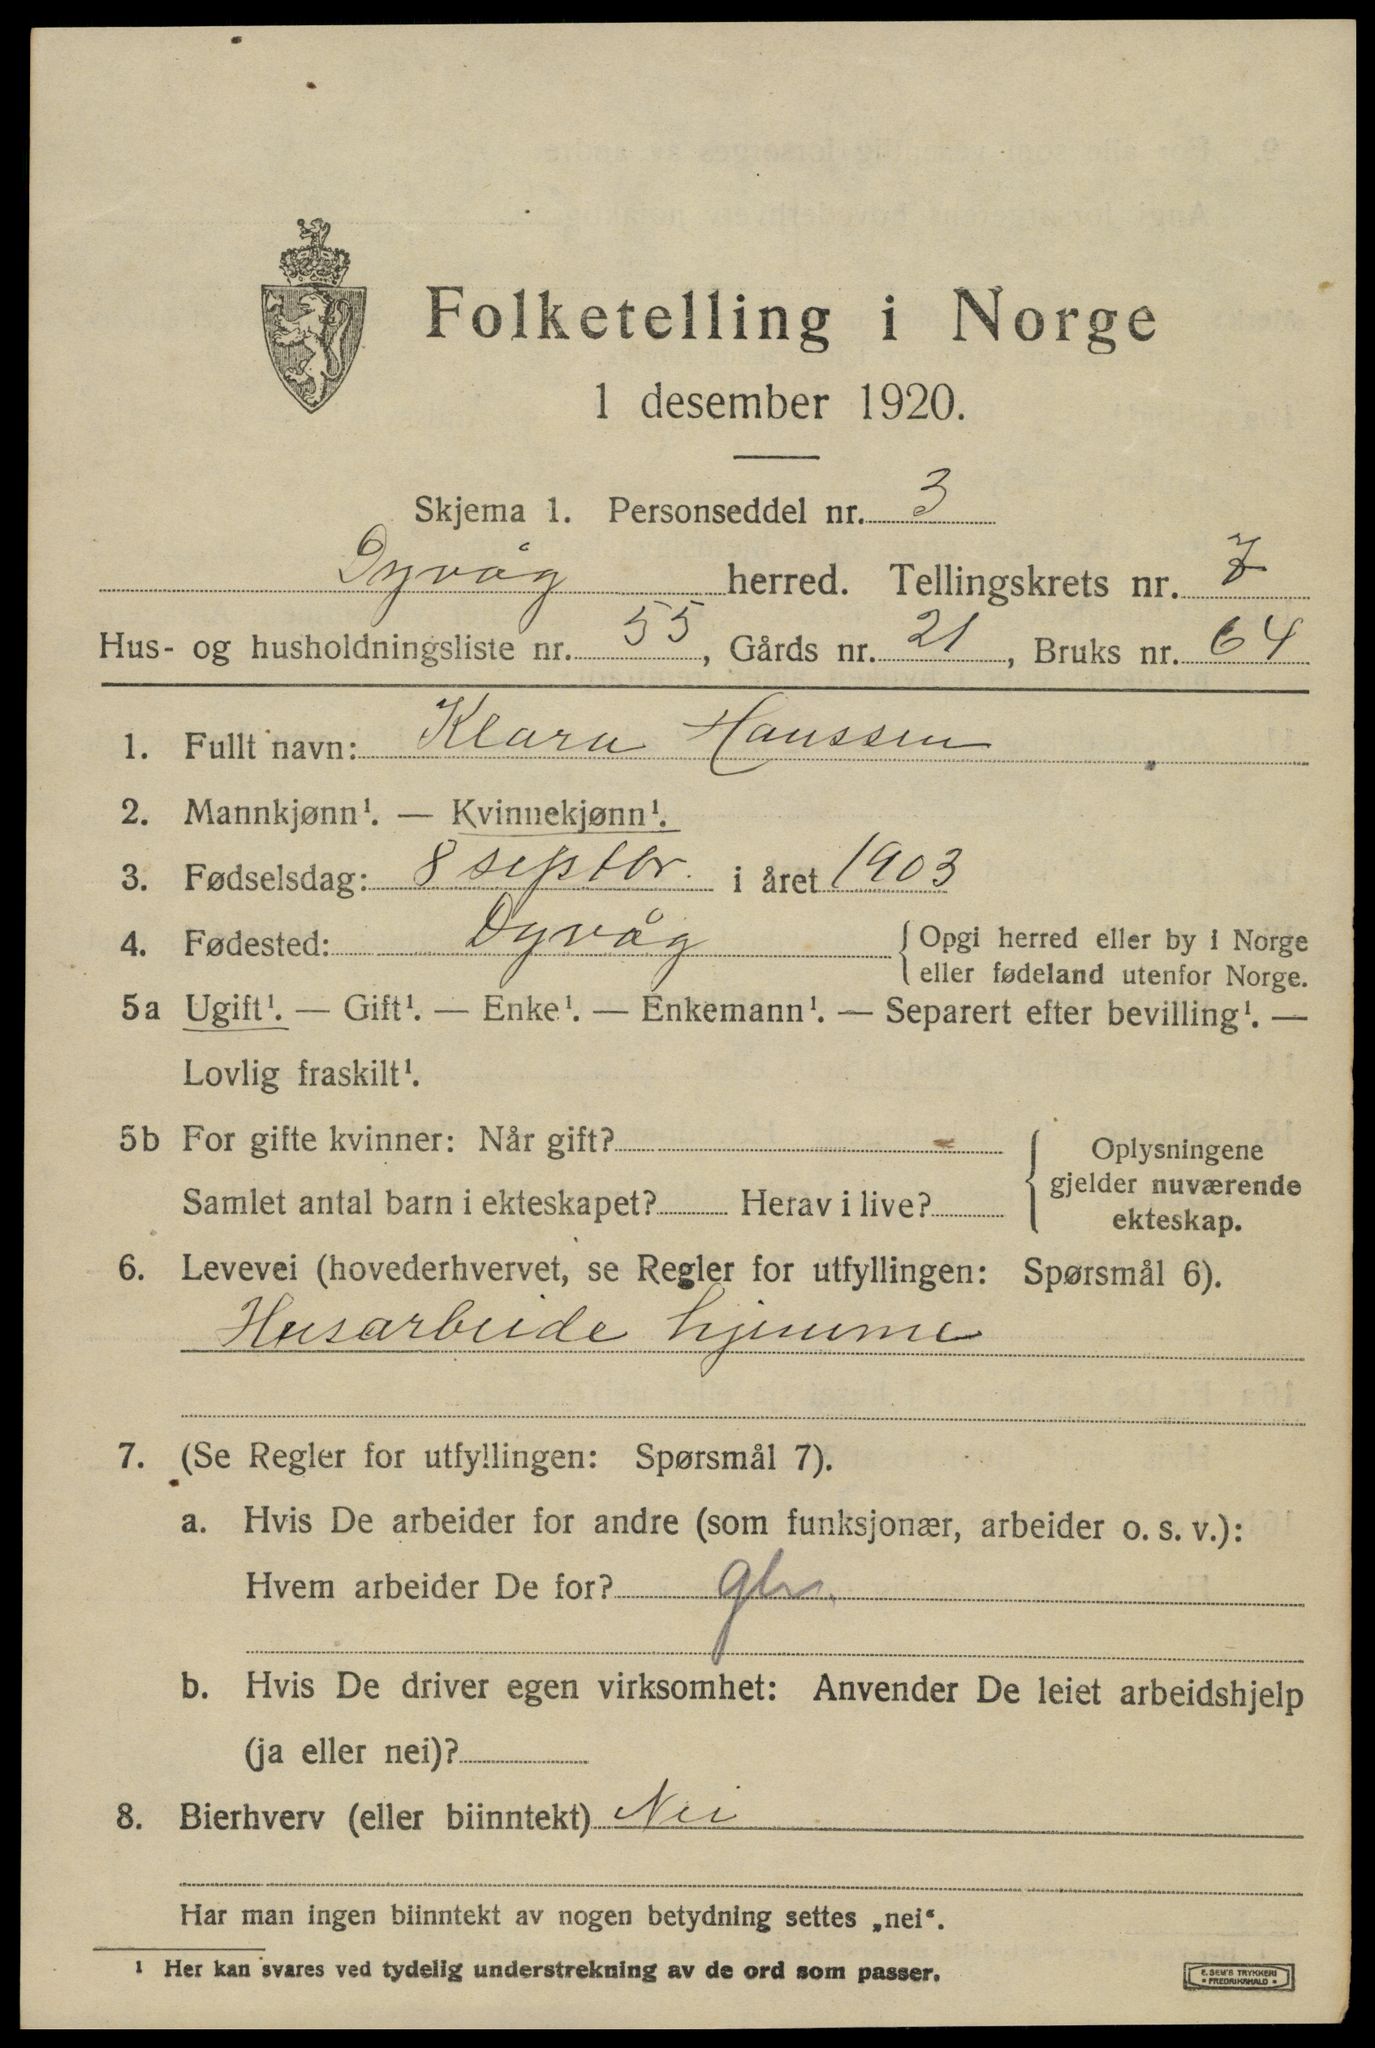 Folketelling i Norge
1 desember 1920.
Skjema 1. Personseddel nr. 3
Dyvåg herred. Tellingskrets nr. 7
Hus- og husholdningsliste nr. 55, Gårds nr. 21, Bruks nr. 64
1. Fullt navn: Klara Hanssen
2. Mannkjønn¹. — Kvinnekjønn¹.
3. Fødselsdag: 8 septbr. i året 1903
4. Fødested: Dyvåg { Opgi herred eller by i Norge
eller fødeland utenfor Norge.
5a Ugift¹. — Gift¹. — Enke¹. — Enkemann¹. — Separert efter bevilling¹. —
Lovlig fraskilt¹.
5b For gifte kvinner: Når gift?
Samlet antal barn i ekteskapet? Herav i live?
{ Oplysningene
gjelder nuværende
ekteskap.
6. Levevei (hovederhvervet, se Regler for utfyllingen: Spørsmål 6).
Husarbeide hjemme
7. (Se Regler for utfyllingen: Spørsmål 7).
a. Hvis De arbeider for andre (som funksjonær, arbeider o. s. v.):
Hvem arbeider De for?
b. Hvis De driver egen virksomhet: Anvender De leiet arbeidshjelp
(ja eller nei)?
8. Bierhverv (eller biinntekt) Nei
Har man ingen biinntekt av nogen betydning settes „nei“.
¹ Her kan svares ved tydelig understrekning av de ord som passer.
E. SEM'S TRYKKERI
• FREDRIKSHALD •